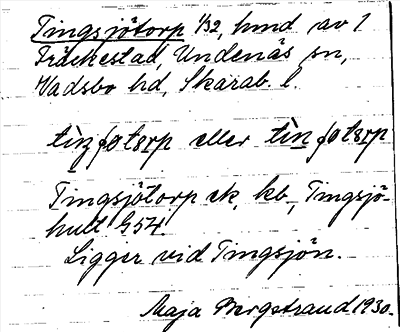 Tingsjötorp 1/32, hmd av 1
Fräckestad, Undenäs sn,
Vadsbo hd, Skarab. l.
eller
Tingsjötorp ek. kb., Tingsjö-
hult G54!
Ligger vid Tingsjön.
Maja Bergstrand 1930.